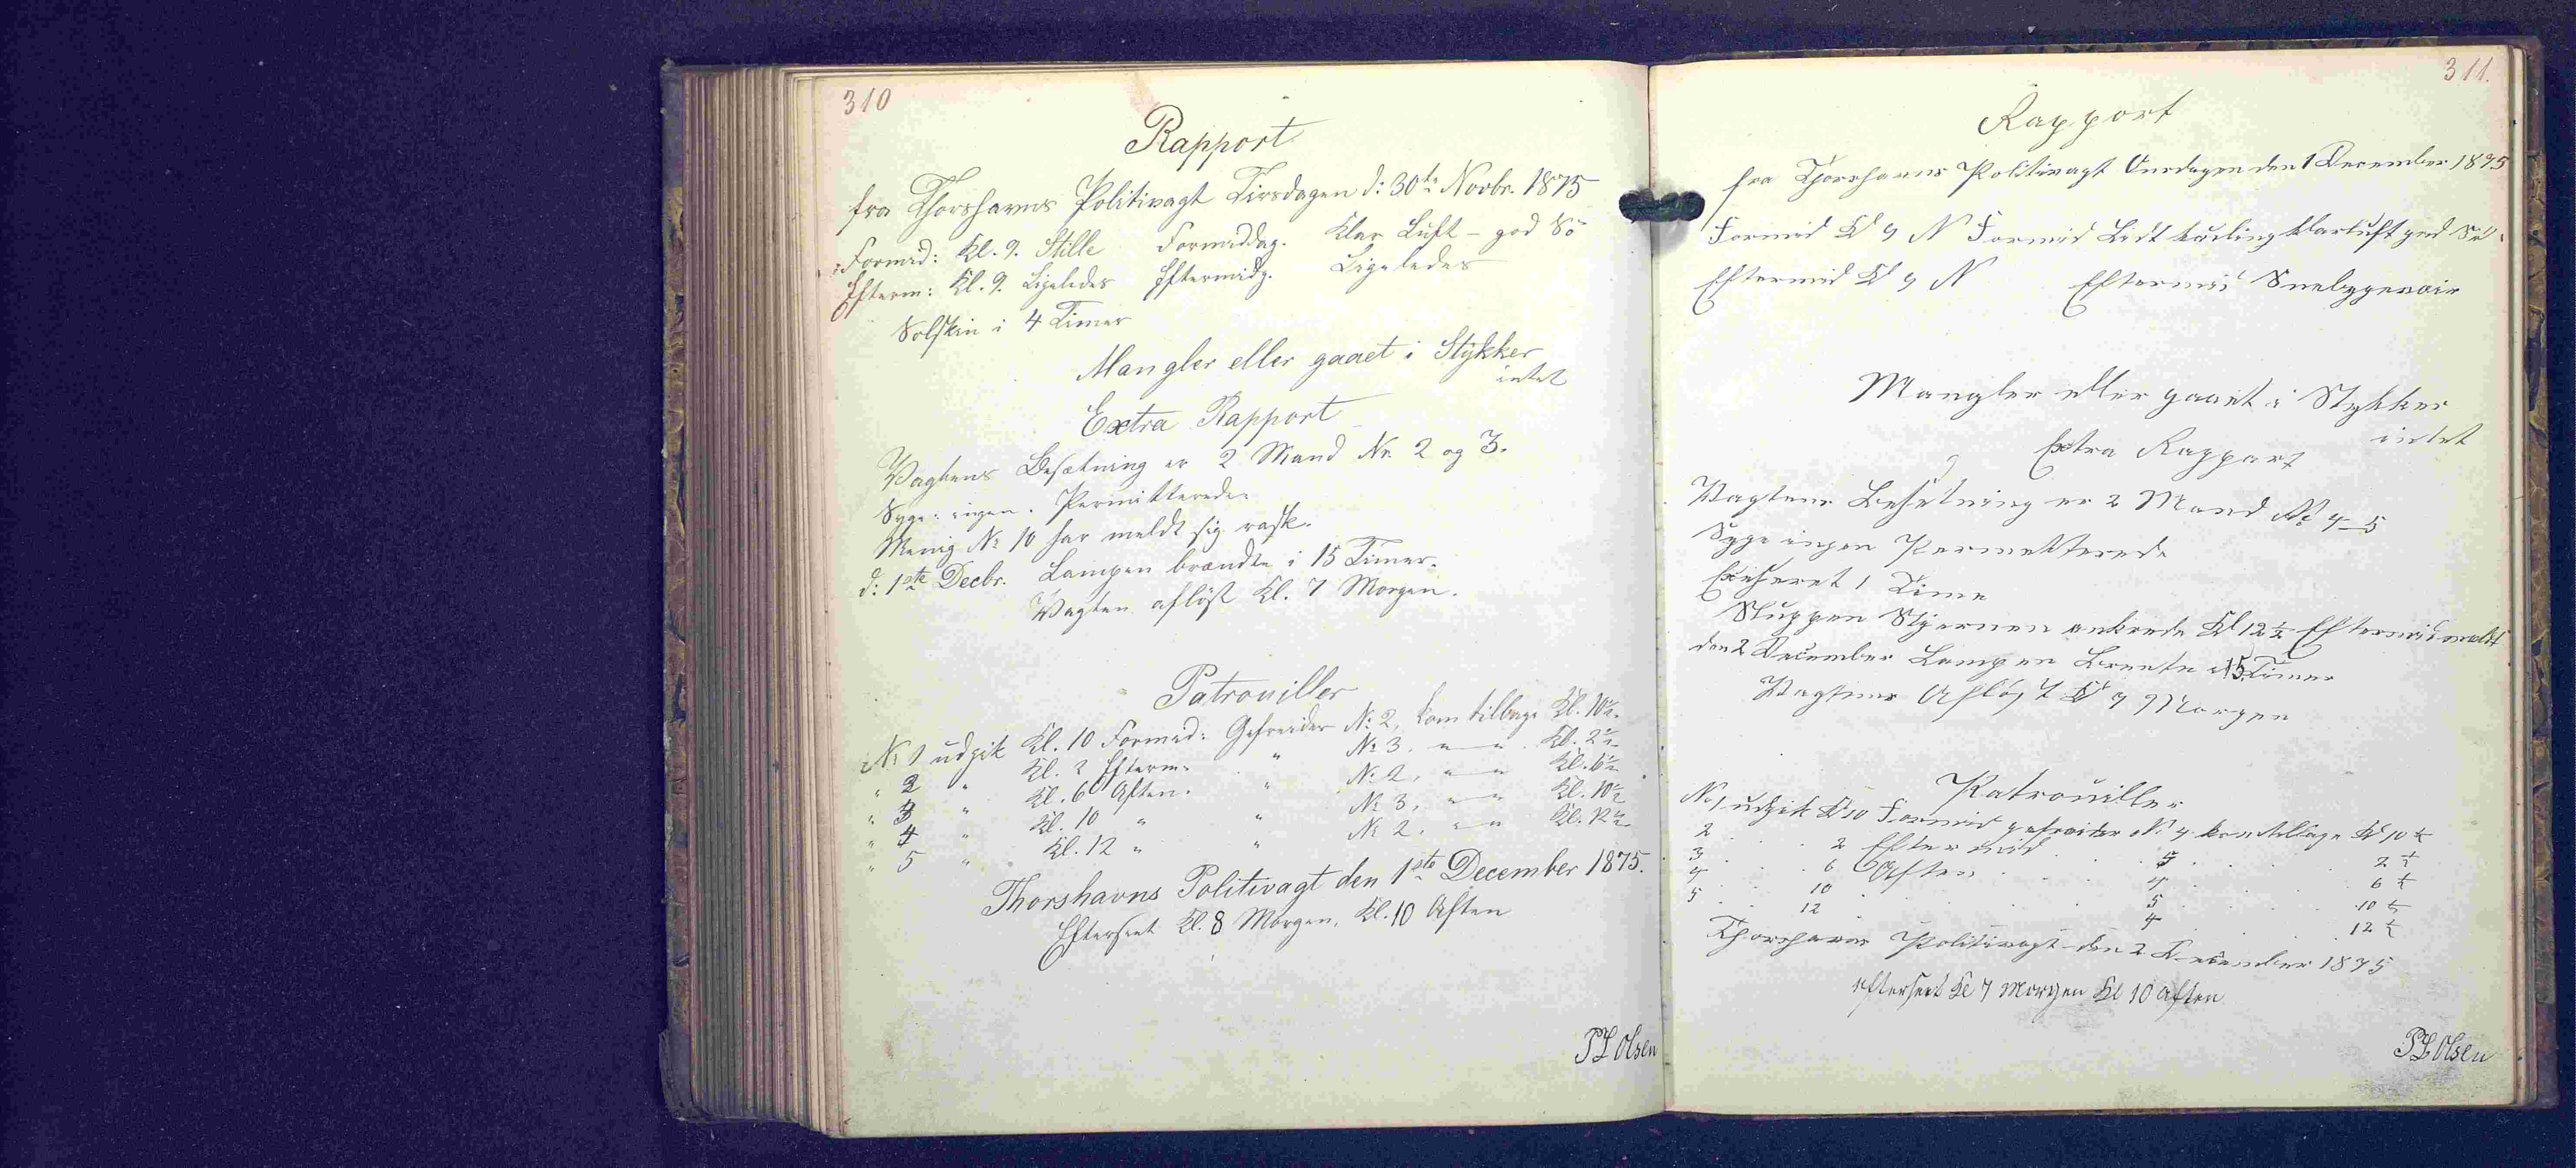 310
Rapport
fra Thorshavns Politivagt Tirsdagen d: 30te Novbr. 1875
Formd: Kl. 9. Stille Formiddag. Klar Luft - god Sö
Efterm: Kl. 9. Ligeledes Eftermidg. Ligeledes
Solskin i 4 Timer
Mangler eller gaaet i Stykker
intet
Extra Rapport
Vagtens Besætning er 2 Mand No. 2 og 3.
Syge: ingen. Permitterede
Menig No 10 har meldt sig rask.
d: 1ste Decbr. Lampen brændte i 15 Timer.
Vagten aflöst Kl. 7 Morgen.
Patrouiller
No 1 udgik Kl. 10 Formd: Gefreider No 2, kom tilbage Kl. 10½
" 2 " Kl. 2 Efterm. " No 3. " " Kl. 2½
" 3 " Kl. 6 Aften. " No 2, " " Kl. 6½
" 4 " Kl. 10 " " No 3, " " Kl. 10½
" 5 " Kl. 12 " " No 2. " " Kl. 12½
Thorshavns Politivagt den 1ste December 1875.
Efterseet Kl. 8 Morgen, Kl. 10 Aften
P L Olsen
311.
Rapport
fra Thorshavns Politivagt Onsdagen den 1 December 1875
Formid Kl 9 N Formid Lidt kuling klarluft god Sö
Eftermid Kl 9 N Eftermid Snebygevair
Mangler eller gaaet i Stykker
intet
Extra Rapport
Vagtens Besetning er 2 Mand No 4-5
Syge ingen Permetterede
Exeseret 1 Time
Sluppen Stjernen ankrede Kl 12½ Eftermid
den 2 December Lampen Brente i 15 Timer
Vagtens Aflöst Kl 7 Morgen
Patrouiller
No 1 udgik Kl 10 Formid gefreider No 4 kom tilbage Kl 10½
2 . . 2 Eftermid . . 5 . . 2½
3 . . 6 Aften . . 4 . . 6½
4 . . 10 . . 5 . . 10½
5 . . 12 . . 4 . . 12½
Thorshavns Politivagt den 2 December 1875
efterseet Kl 7 Morgen Kl 10 Aften
P L Olsen